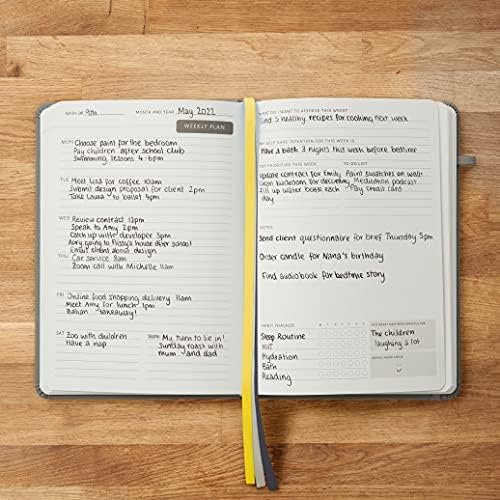 WEEK OF 9th MONTH AND YEAR May 2022
WEEKLY PLAN
MON Choose paint for the bedroom
Pay children after school club
Swimming lessons 4-6pm
TUE Meet Lisa for coffee 10am
Submit design proposal for client 2pm
Take Laura to ballet 4pm
WED Review contract 12pm
Speak to Amy 2pm
Catch up with developer 3pm
Rory going to Missy's house after school
Email client about design
THU Car service 8am
Zoom call with Michelle 11am
FRI Online food shopping delivery 11am
Meet Amy for lunch 1pm
Italian takeaway!
SAT Zoo with children
Have a nap
SUN My turn to lie in!
Sunday roast with
mum and dad
WHAT DO I WANT TO ACHIEVE THIS WEEK?
Find 5 healthy recipes for cooking next week
MY SELF CARE INTENTION FOR THIS WEEK IS
Have a bath 3 nights this week before bedtime
TOP PRIORITIES THIS WEEK
Update contract for Emily
Clean bathroom for decorating
Fill up water bottle each
day
TO DO LIST
Paint swatches on wall
Meditation podcast
Pay credit card
NOTES
Send client questionnaire for brief Thursday 5pm
Order candle for Nana's birthday
Find audiobook for bedtime story
HABIT TRACKER
Sleep Routine
HIIT
Hydration
Bath
Reading
The children
laughing a lot